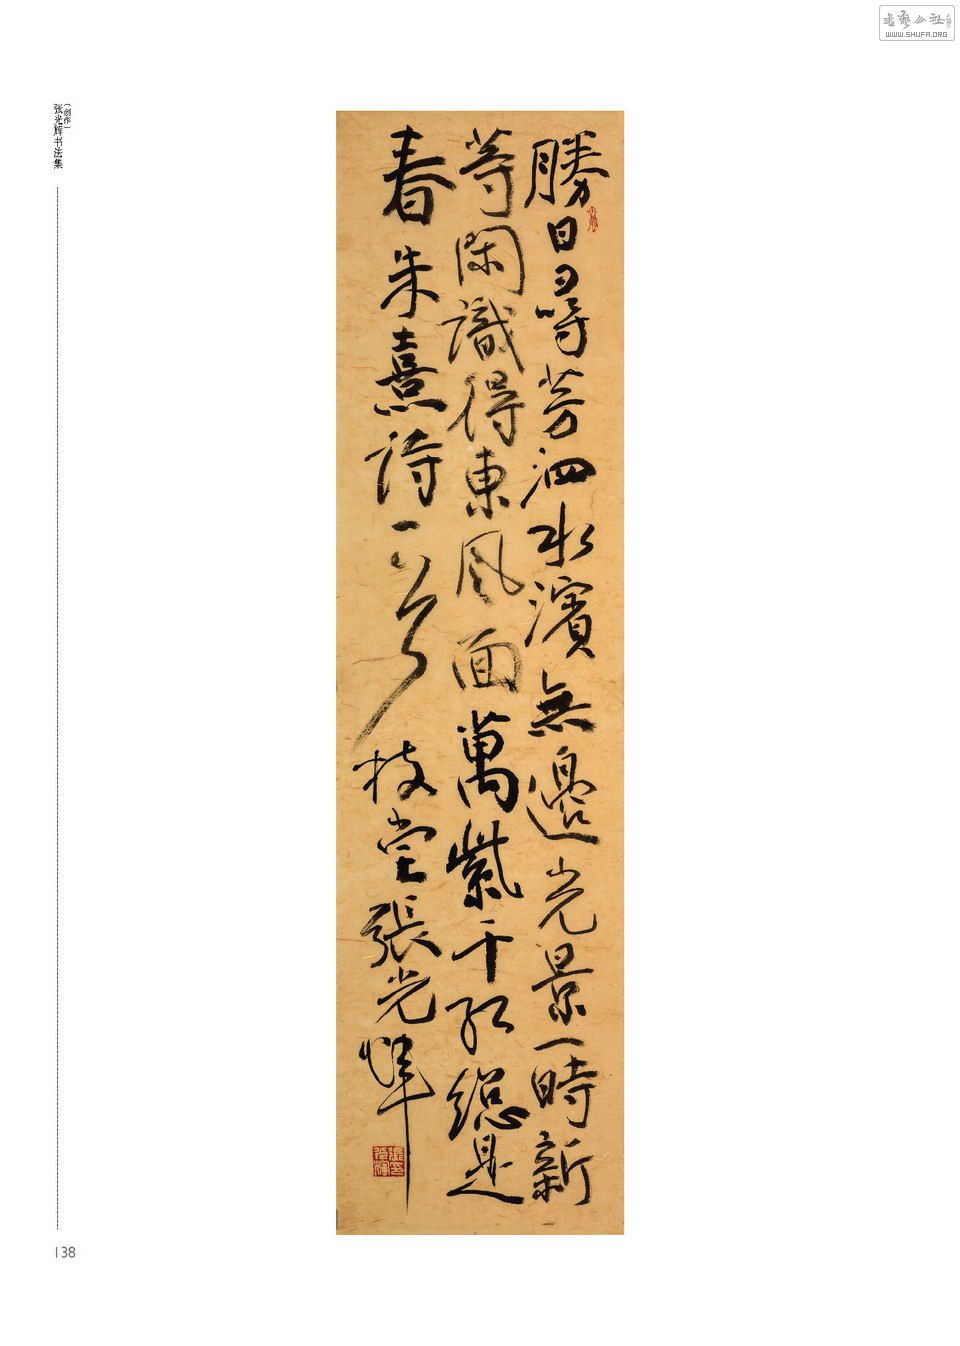 勝日尋芳泗水濱無邊光景一時新
等閑識得東風面萬紫千红總是
春朱熹詩一首枝堂張光輝
(创作)
张光辉书法集
138
WWW.SHUFA.ORG